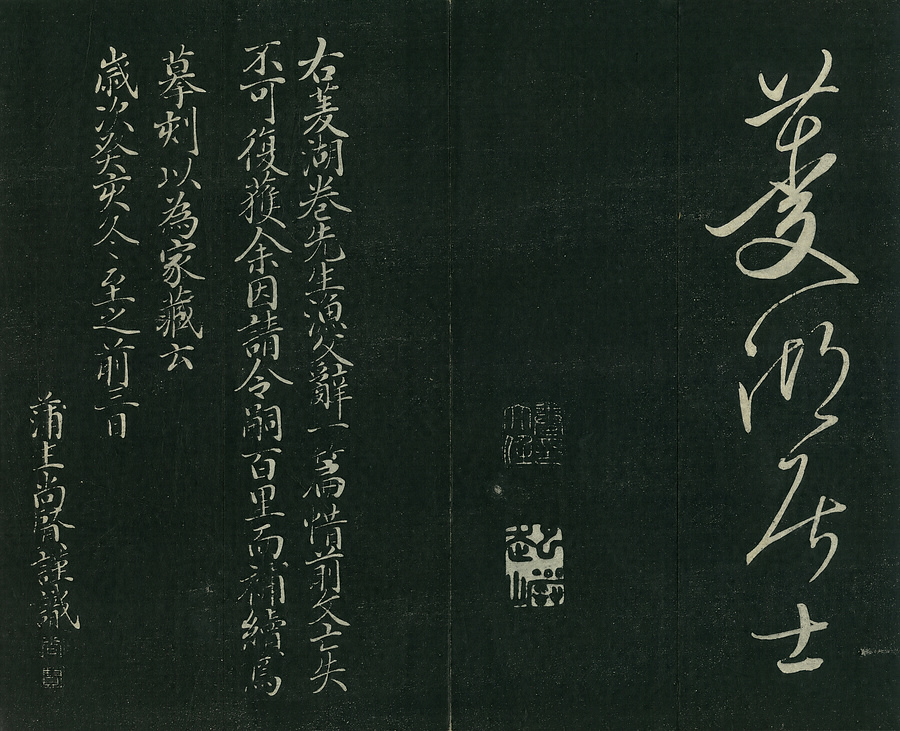 菱湖居士
右菱湖卷先生漁父辭一篇惜前文亡失
不可復獲余因請令嗣百里而補續焉
摹刻以為家藏云
歲次癸亥冬冬至之前三日
蒲上尚賢謹識